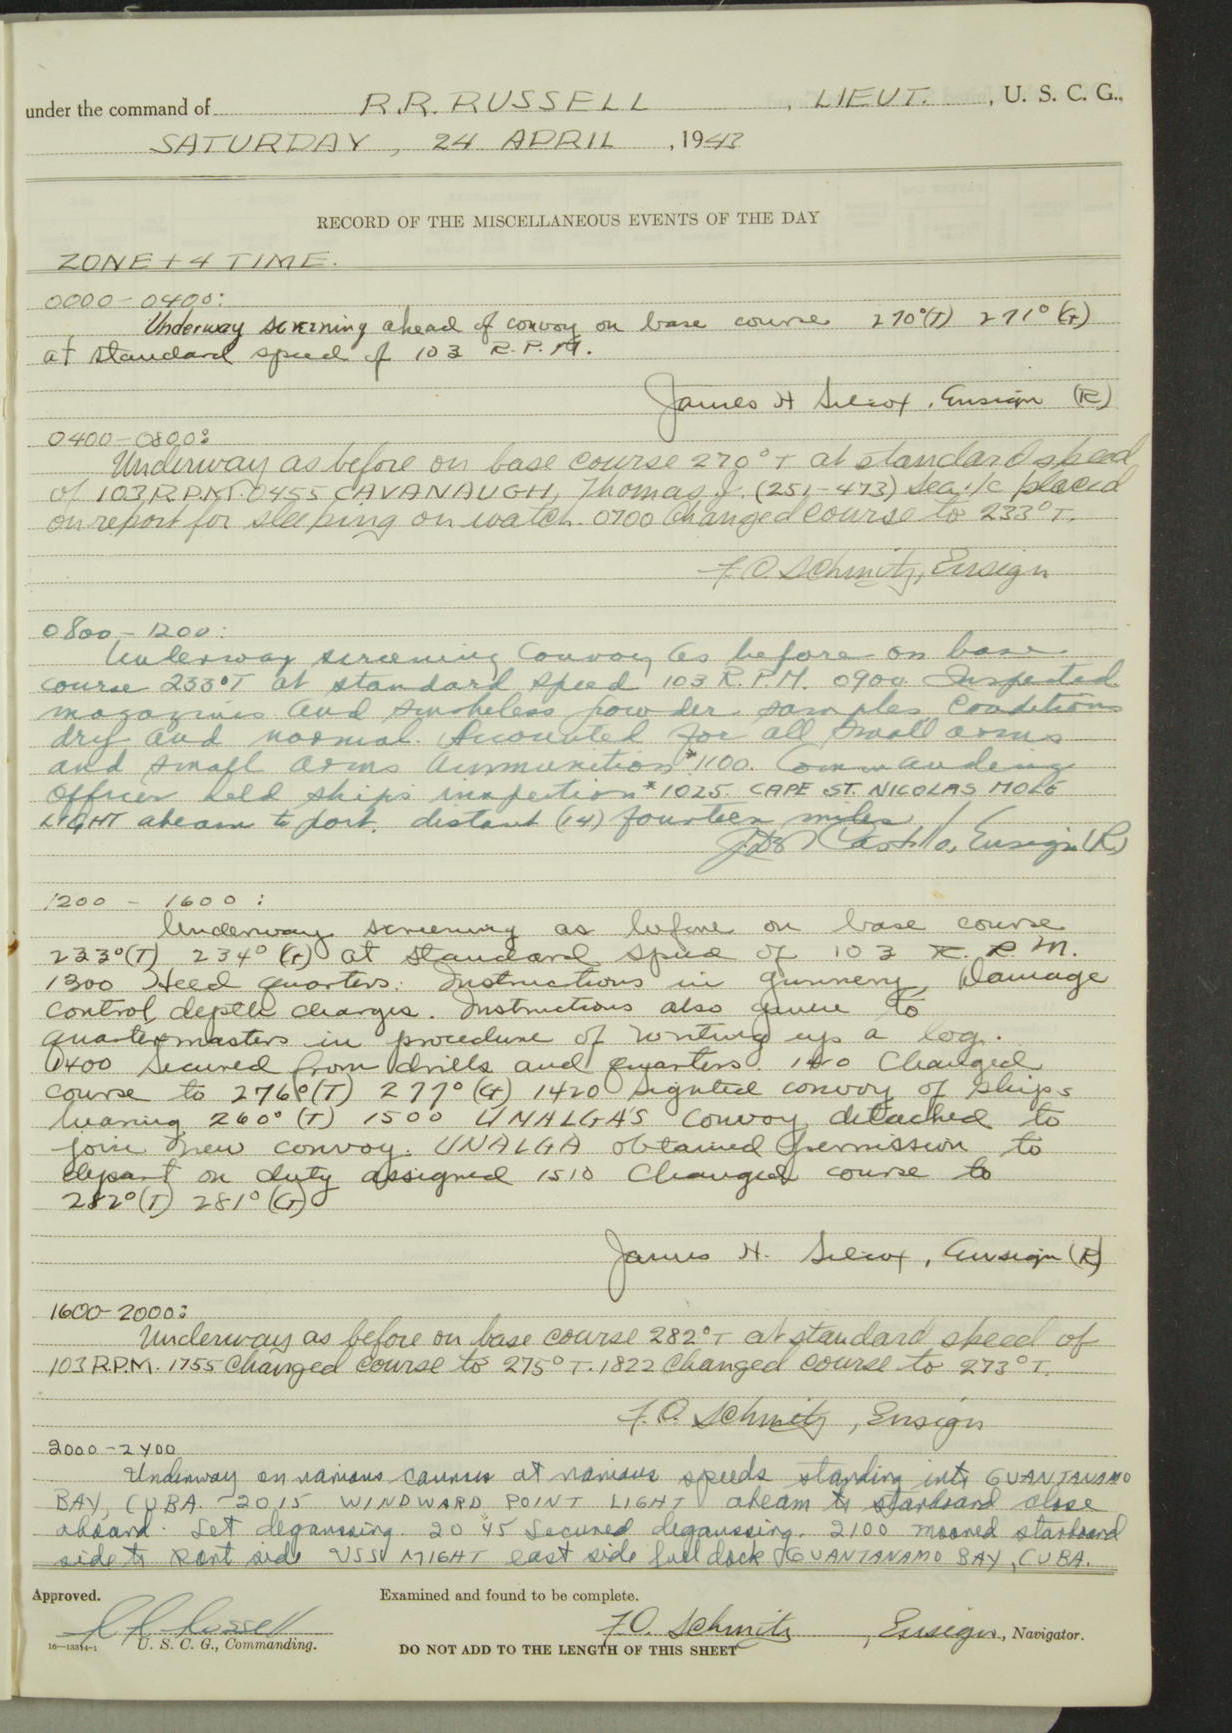 under the command of R.R. RUSSELL, LIEUT., U. S. C. G.,
SATURDAY, 24 APRIL, 1943
RECORD OF THE MISCELLANEOUS EVENTS OF THE DAY
ZONE + 4 TIME.
0000-0400:
Underway screening ahead of convoy on base course 270°(T) 271° (G)
at standard speed of 103 R.P.M.
James H Silcox, Ensign (R)
0400-0800:
Underway as before on base course 270° T at standard speed
of 103 R.P.M. 0455 CAVANAUGH, Thomas J. (251-473) Sea. 1/c placed
on report for sleeping on watch. 0700 Changed course to 233° T.
F.O. Schmitz, Ensign
0800-1200:
Underway screening Convoy as before on base
course 233°T at standard speed 103 R.P.M. 0900 Inspected
magazines and smokeless powder samples Conditions
dry and normal. Accounted for all small arms
and small arms ammunition * 1100. Commanding
Officer held ships inspection * 1025 CAPE ST. NICOLAS MOLE
LIGHT abeam to port, distant (14) fourteen miles
Castillo, Ensign (R)
1200 - 1600:
Underway screening as before on base course
233°(T) 234° (G) at standard speed of 103 R. P. M.
1300 Held quarters. Instructions in gunnery, Damage
control, depth charges. Instructions also given to
quartermasters in procedure of writing up a log.
1400 Secured from drills and quarters. Changed
course to 276°(T) 277° (G) 1420 Sighted convoy of ships
bearing 260° (T) 1500 UNALGA'S Convoy detached to
join new convoy. UNALGA obtained permission to
depart on duty assigned 1510 Changed course to
282°(T) 281° (G)
James H. Silcox, Ensign (R)
1600-2000:
Underway as before on base course 282° T at standard speed of
103 R.P.M. 1755 Changed course to 275° T. 1822 Changed course to 273° T.
F.O. Schmitz, Ensign
2000-2400
Underway on various courses at various speeds standing into GUANTANAMO
BAY, CUBA. - 2015 WINDWARD POINT LIGHT abeam to starboard close
aboard. Set degaussing. 2045 Secured degaussing. 2100 moored starboard
side to port side USS MIGHT east side fuel dock GUANTANAMO BAY, CUBA.
Approved. Examined and found to be complete.
R R Russell F.O. Schmitz, Ensign, Navigator.
16—13314-1 U. S. C. G., Commanding.
DO NOT ADD TO THE LENGTH OF THIS SHEET